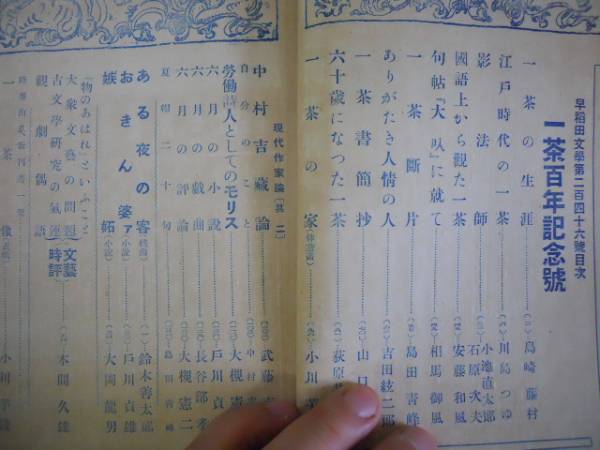 早稻田文學第二百四十六號目次
一茶百年記念號
一茶の生涯 島崎藤村
江戸時代の一茶 川島つゆ
影法師 小池直太郎 石原次夫
國語上から觀た一茶 安藤和風
句帖『大叺』に就て 相馬御風
一茶斷片 島田青峰
ありがたき人情の人 吉田絃二郎
一茶書簡抄 山口
六十歳になつた一茶 荻原
一茶の家 小川芋
現代作家論〔其二〕
中村吉藏論 武藤
自分のこと 中村
勞働詩人としてのモリス 大槻憲
六月の小說 戸川貞
六月の戯曲 長谷部孝
六月の評論 大槻憲二
夏帽二十句 島田青峰
ある夜の客(戯曲) 鈴木善太郎
おきん婆ァ(小説) 戸川貞雄
嫉妬(小説) 大岡龍男
「物のあはれ」といふこと
大衆文藝の問題
古文學研究の氣運
觀劇偶語
文藝時評 本間久雄
一茶像 小川芋錢